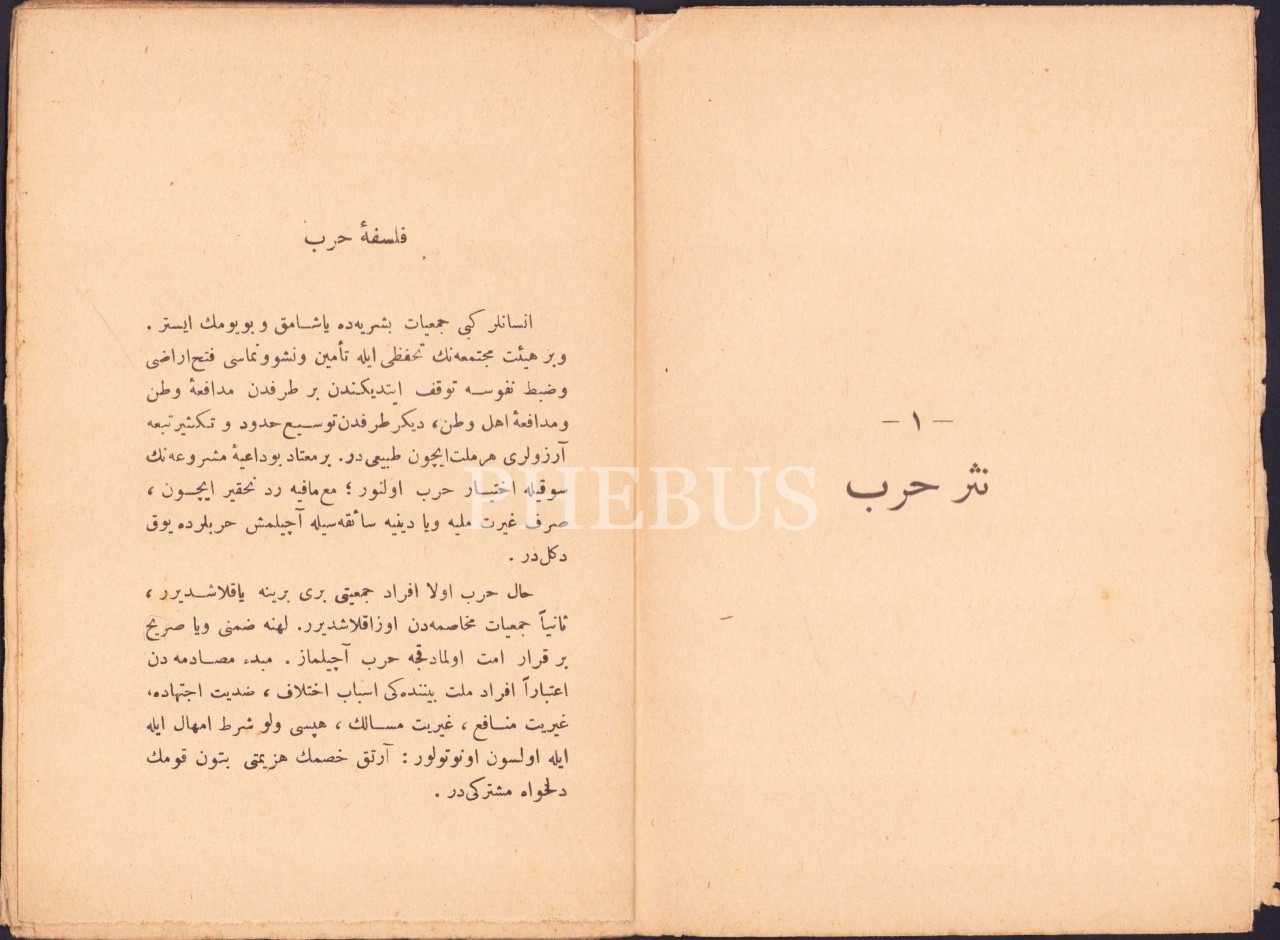 — ١ —
نثر حرب
فلسفهٔ حرب
انسانلر کبی جمعیات بشریه‌ده یاشامق و بویومك ایستر .
وبر هیئت مجتمعه‌نك تحفظی ایله تأمین ونشوونماسی فتح اراضی
وضبط نفوسه توقف ایتدیکندن بر طرفدن مدافعهٔ وطن
ومدافعهٔ اهل وطن، دیکر طرفدن توسیع حدود و تکثیر تبعه
آرزولری هر ملت ایچون طبیعی در. بر معتاد بوداعیهٔ مشروعه‌نك
سوقیله اختیار حرب اولنور ؛ مع مافیه رد تحقیر ایچون ،
صرف غیرت ملیه ویا دینیه سائقه‌سیله آچیلمش حربلرده یوق
دکل در .
حال حرب اولا افراد جمعیتی بری برینه یاقلاشدیرر ،
ثانیاً جمعیات مخاصمه‌دن اوزاقلاشدیرر. لهنه ضمنی ویا صریح
بر قرار امت اولمادقجه حرب آچیلماز . مبدء مصادمه دن
اعتباراً افراد ملت بیننده‌کی اسباب اختلاف ، ضدیت اجتهاده،
غیریت منافع ، غیریت مسالك ، هپسی ولو شرط امهال ایله
ایله اولسون اونوتولور : آرتق خصمك هزیمتی بتون قومك
دلخواه مشترکی در .
PHEBUS